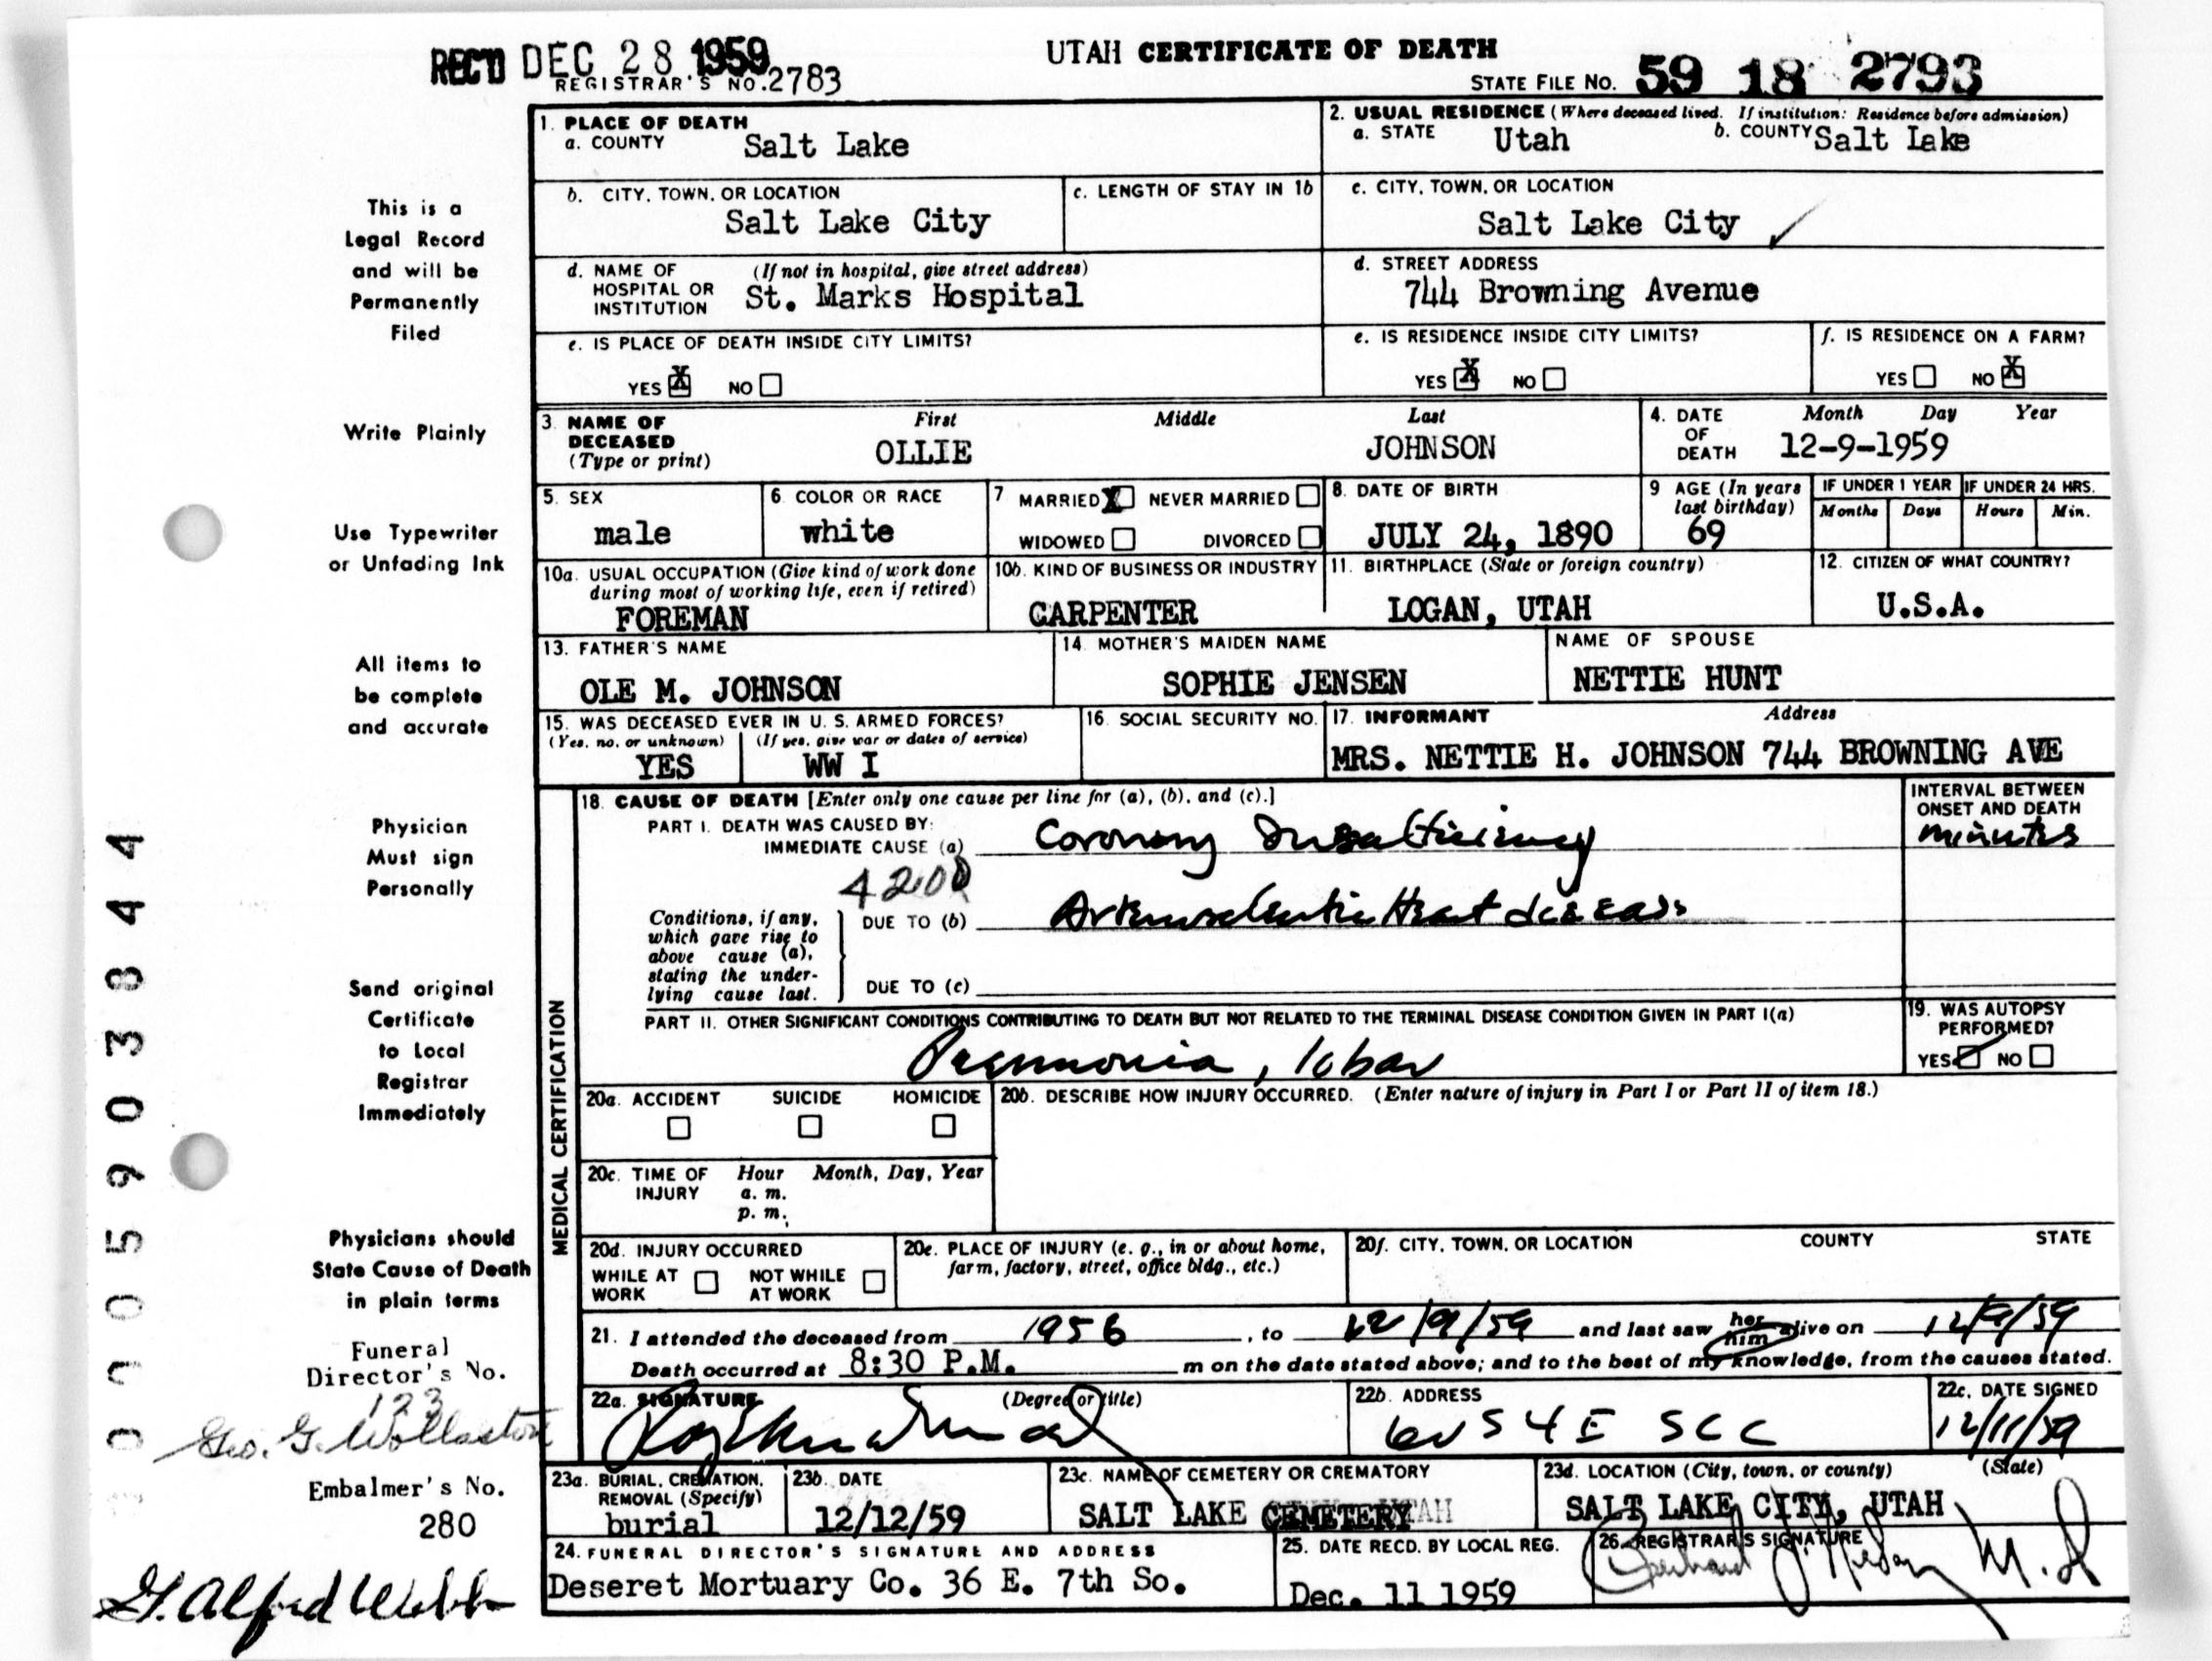 REC'D DEC 28 1959
UTAH CERTIFICATE OF DEATH
REGISTRAR'S NO. 2783
STATE FILE NO. 59 18 2793
This is a
Legal Record
and will be
Permanently
Filed
Write Plainly
Use Typewriter
or Unfading Ink
All items to
be complete
and accurate
Physician
Must sign
Personally
Send original
Certificate
to Local
Registrar
Immediately
Physicians should
State Cause of Death
in plain terms
Funeral
Director's No.
123
Geo. G. Wollaston
Embalmer's No.
280
G. Alfred Webb
1. PLACE OF DEATH
a. COUNTY Salt Lake
2. USUAL RESIDENCE (Where deceased lived. If institution: Residence before admission)
a. STATE Utah b. COUNTY Salt Lake
b. CITY, TOWN, OR LOCATION
Salt Lake City
c. LENGTH OF STAY IN 1b
c. CITY, TOWN, OR LOCATION
Salt Lake City
d. NAME OF (If not in hospital, give street address)
HOSPITAL OR
INSTITUTION St. Marks Hospital
d. STREET ADDRESS
744 Browning Avenue
e. IS PLACE OF DEATH INSIDE CITY LIMITS?
YES X NO
e. IS RESIDENCE INSIDE CITY LIMITS?
YES X NO
f. IS RESIDENCE ON A FARM?
YES NO X
3. NAME OF DECEASED (Type or print)
First Middle Last
OLLIE JOHNSON
4. DATE OF DEATH Month Day Year
12-9-1959
5. SEX
male
6. COLOR OR RACE
white
7 MARRIED X NEVER MARRIED
WIDOWED DIVORCED
8. DATE OF BIRTH
JULY 24, 1890
9 AGE (In years last birthday)
69
IF UNDER 1 YEAR
Months Days
IF UNDER 24 HRS.
Hours Min.
10a. USUAL OCCUPATION (Give kind of work done
during most of working life, even if retired)
FOREMAN
10b. KIND OF BUSINESS OR INDUSTRY
CARPENTER
11. BIRTHPLACE (State or foreign country)
LOGAN, UTAH
12. CITIZEN OF WHAT COUNTRY?
U.S.A.
13. FATHER'S NAME
OLE M. JOHNSON
14. MOTHER'S MAIDEN NAME
SOPHIE JENSEN
NAME OF SPOUSE
NETTIE HUNT
15. WAS DECEASED EVER IN U. S. ARMED FORCES?
(Yes, no, or unknown) (If yes, give war or dates of service)
YES WW I
16. SOCIAL SECURITY NO.
17. INFORMANT Address
MRS. NETTIE H. JOHNSON 744 BROWNING AVE
MEDICAL CERTIFICATION
18. CAUSE OF DEATH [Enter only one cause per line for (a), (b), and (c).]
INTERVAL BETWEEN
ONSET AND DEATH
PART I. DEATH WAS CAUSED BY:
IMMEDIATE CAUSE (a) Coronary Insufficiency minutes
4200
Conditions, if any,
which gave rise to
above cause (a),
stating the under-
lying cause last.
DUE TO (b) Arteriosclerotic Heart disease
DUE TO (c)
PART II. OTHER SIGNIFICANT CONDITIONS CONTRIBUTING TO DEATH BUT NOT RELATED TO THE TERMINAL DISEASE CONDITION GIVEN IN PART I(a)
Pneumonia, lobar
19. WAS AUTOPSY
PERFORMED?
YES NO
20a. ACCIDENT SUICIDE HOMICIDE
20b. DESCRIBE HOW INJURY OCCURRED. (Enter nature of injury in Part I or Part II of item 18.)
20c. TIME OF INJURY Hour Month, Day, Year
a. m.
p. m.
20d. INJURY OCCURRED
WHILE AT WORK NOT WHILE AT WORK
20e. PLACE OF INJURY (e. g., in or about home,
farm, factory, street, office bldg., etc.)
20f. CITY, TOWN, OR LOCATION COUNTY STATE
21. I attended the deceased from 1956, to 12/9/59 and last saw her him alive on 12/9/59
Death occurred at 8:30 P.M. m on the date stated above; and to the best of my knowledge, from the causes stated.
22a. SIGNATURE (Degree or title)
22b. ADDRESS
22c. DATE SIGNED
12/11/59
23a. BURIAL, CREMATION,
REMOVAL (Specify)
burial
23b. DATE
12/12/59
23c. NAME OF CEMETERY OR CREMATORY
SALT LAKE CEMETERY
23d. LOCATION (City, town, or county) (State)
SALT LAKE CITY, UTAH
24. FUNERAL DIRECTOR'S SIGNATURE AND ADDRESS
Deseret Mortuary Co. 36 E. 7th So.
25. DATE RECD. BY LOCAL REG.
Dec. 11 1959
26. REGISTRAR'S SIGNATURE
M.D